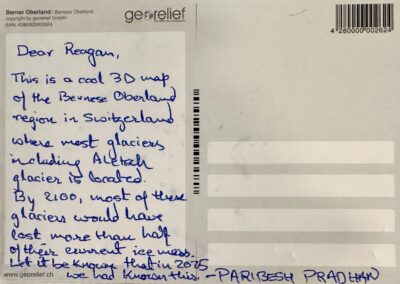 Berner Oberland / Bernese Oberland
copyright by georelief GmbH
EAN: 4280000002624
georelief
4 280000 002624
Dear Reagan,
This is a cool 3D map
of the Bernese Oberland
region in Switzerland
where most glaciers
including Aletsch
glacier is located.
By 2100, most of these
glaciers would have
lost more than half
of their current ice mass.
Let it be known that in 2025
we had known this. - PARIBESH PRADHAN
www.georelief.ch